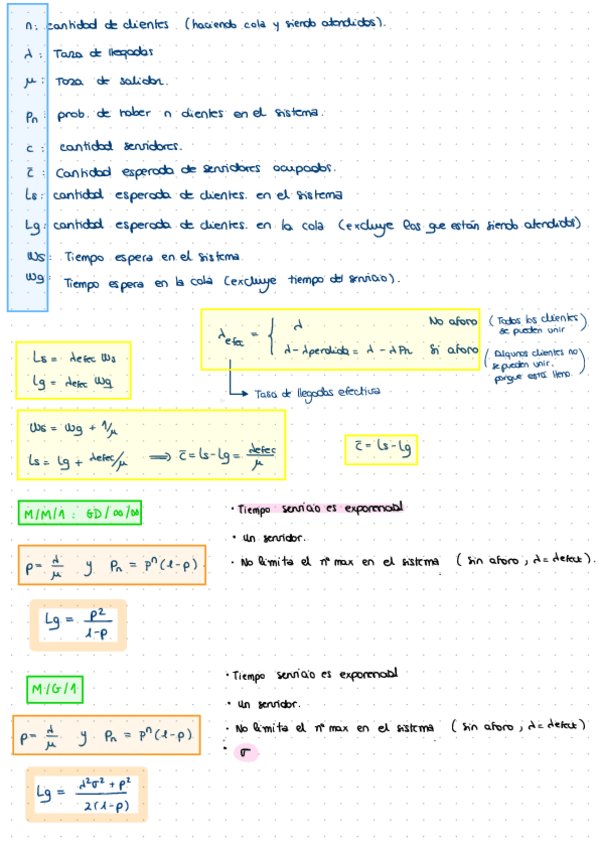 n: cantidad de clientes (haciendo cola y siendo atendidos).
λ: Taza de llegadas
μ: Taza de salidas.
Pn: prob. de haber n clientes en el sistema.
c: cantidad servidores.
c̄: Cantidad esperada de servidores ocupados.
Ls: cantidad esperada de clientes. en el sistema
Lq: cantidad esperada de clientes. en la cola (excluye los que estan siendo atendidos)
Ws: Tiempo espera en el sistema
Wq: Tiempo espera en la cola (excluye tiempo del servicio).
λefec = { λ No aforo (Todos los clientes se pueden unir
λ - λperdida = λ - λPn. Si aforo (Algunos clientes no se pueden unir, porque está lleno.
Tasa de llegadas efectiva
Ls = λefec Ws
Lq = λefec Wq
Ws = Wq + 1/μ
Ls = Lq + λefec/μ ⟹ c̄ = Ls - Lq = λefec/μ
c̄ = Ls - Lq
M/M/1: GD/∞/∞
• Tiempo servicio es exponencial
• Un servidor.
• No limita el nº max en el sistema (sin aforo, λ = λefect).
p = λ/μ y Pn = pⁿ(1-p)
Lq = p²/(1-p)
M/G/1
• Tiempo servicio es exponencial
• Un servidor.
• No limita el nº max en el sistema (sin aforo, λ = λefect)
• σ
p = λ/μ y Pn = pⁿ(1-p)
Lq = (λ²σ² + p²)/(2(1-p))